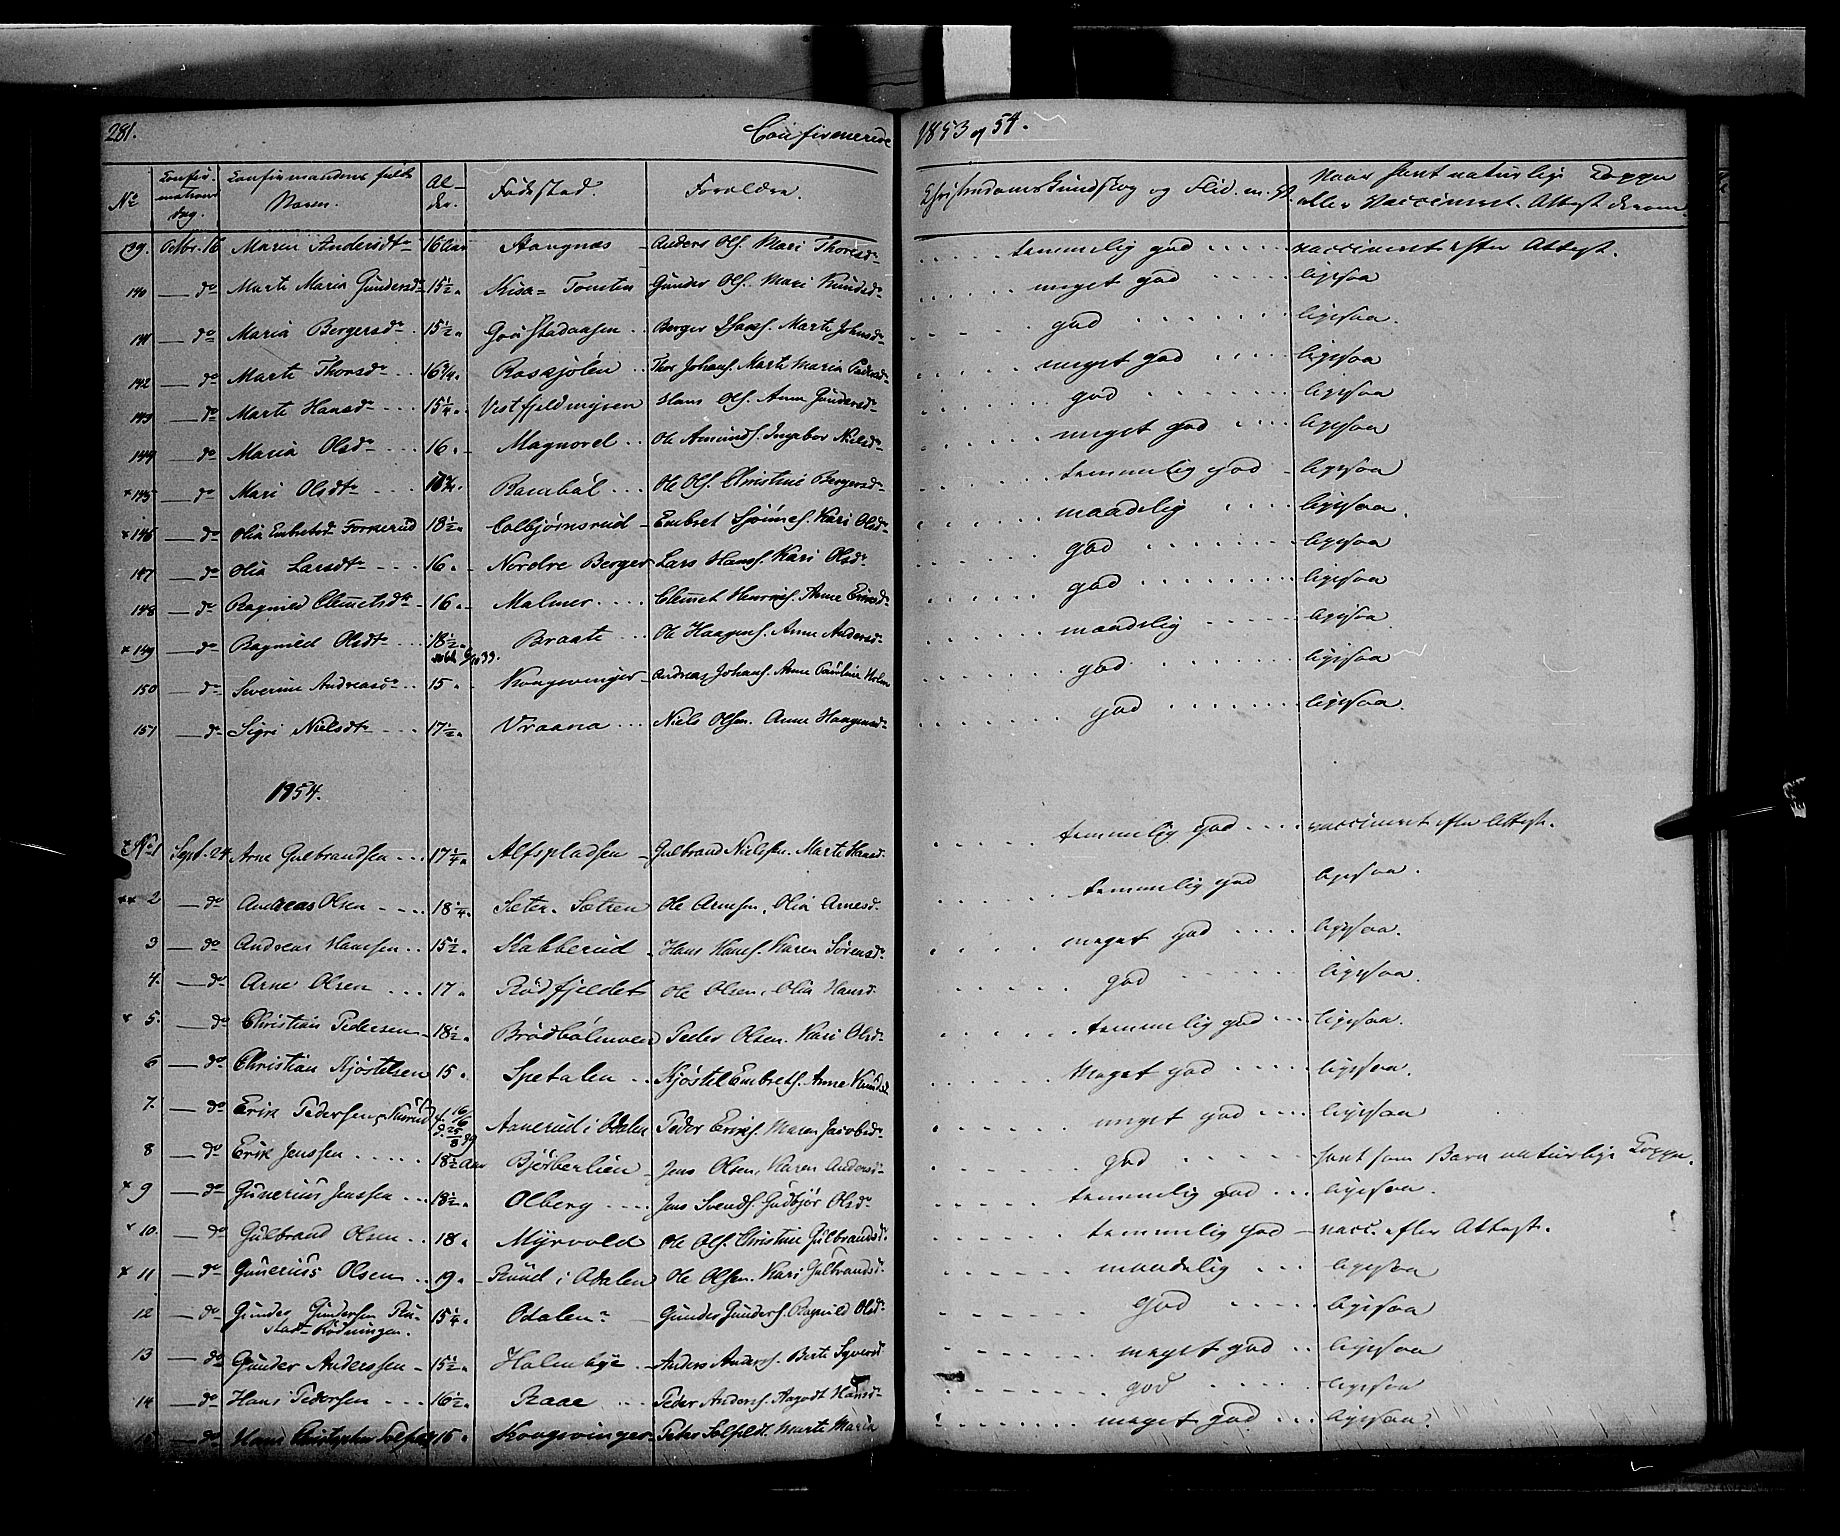 281. Confirmerede 1853 og 54.
No Confirmations dag. Confirmandens fulde Navn. Alder. Fødested. Forældre. Christendoms Kundskab og Flid. m. v. Naar havt naturlige Kopper eller Vaccineret. Attest derom.
139. Octbr. 16 Maren Andersdtr 16 Aar Aangnæs Anders Ols. Mari Thoresdr temmelig god vaccineret efter Attest.
140 do Marte Maria Gundersdr 15½ Kisa Tomten Gunder Ols. Mari Knudsdr meget god ligesaa
141 do Maria Bergersdr 15½ Berger Marte Johnsdr god ligesaa.
142 do Marte Thorsdr 16¾ Raskjølen Thor Johans. Marte Maria Pedersdr meget god ligesaa
143 do Marte Hansdr 15¼ Vestfjeldmyren Hans Ols. Anne Gundersdr god ligesaa
144 do Maria Olsdr 16 Magnorel Ole Amunds. Ingebor Nielsdr meget god ligesaa
x 145 do Mari Olsdtr Ole Ols. Christine Bergersdr temmelig god ligesaa
x 146 do Olia Embretsdr 18½ Colbjørnsrud Embret Kari Olsdr maadelig ligesaa.
147 do Olia Larsdtr 16 Nordre Berger Lars Hanss. Kari Olsdr god ligesaa
148 do Ragnild Clemetsdtr 16 Malmer Clemet Henriks. Anne Eriksdr god ligesaa
x 149 do Ragnild Olsdtr 18½ Braate Ole Haagens. Anne Andersdr maadelig ligesaa.
150 do Severine Andreasdr 15 Kongsvinger Andreas Johans. Anne Pauline Holm god ligesaa
151 do Sigri Nielsdtr 17½ Vraana Niels Olsen. Anne Haagensdr god ligesaa.
1854.
x No 1 Sept. 24 Arne Gulbrandsen 17¼ Alfspladsen Gulbrand Nielsen. Marte Hansd. temmelig god vaccineret efter Attest.
xx 2 do Andreas Olsen 18¼ Sæter Sætren Ole Arnesen, Olia Arnesd. temmelig god ligesaa.
3 do Andreas Hanssen 15½ Kabberud Hans Hans. Karen Sørensdr meget god ligesaa.
4. do Arne Olsen 17 Rødfjeldet Ole Olsen, Olia Hansd. god ligesaa.
x 5. do Christian Pedersen 18½ Brødbølmoen Peder Olsen. Kari Olsdr temmelig god ligesaa.
6 do Christian Kjøstelsen 15 Spetalen Kjøstel Embrets. Anne Knudsdr Meget god ligesaa.
7. do Erik Pedersen Aanerud i Odalen Peder Eriks. Maren Jacobsdr meget god ligesaa
8 do Erik Jenssen 18½ Aar Bjørberlien Jens Olsen, Karen Andersdr god havt som Barn naturlige Kopper.
x 9 do Gunerius Jenssen 18½ Olberg Jens Svends. Gudbjør Olsdr temmelig god ligesaa.
x 10. do Gulbrand Olsen 18 Myrvold Ole Ols. Christine Gulbrandsdr temmelig god vacc. efter Attest.
x 11 do Gunerius Olsen 19 Ruud i Odalen Ole Olsen. Kari Gulbrandsd. maadelig ligesaa
12 do Gunder Gundersen Rustad Rødningen. 15¼ Odalen Gunder Gunders. Ragnild Olsdr god ligesaa
13 do Gunder Anderssen 15½ Holmbye Anders Anders. Berte Syversd meget god ligesaa
14 do Hans Pedersen 16½ Raae Peder Anders. Aagodt Hansdr god ligesaa
15 do Hans Christopher Solfeldt 15 Kongsvinger Peter Solfeldt. Marte Maria meget god ligesaa.